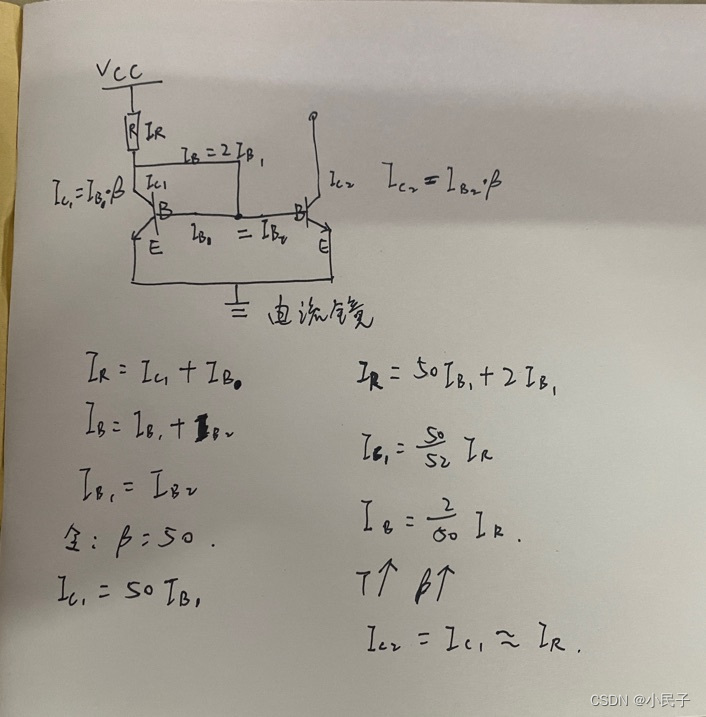 VCC
R IR
IB = 2IB1
IC1 = IB1·β
IC1
IC2
IC2 = IB2·β
B
B
IB1 = IB2
E
E
电流镜
IR = IC1 + IB
IB = IB1 + IB2
IB1 = IB2
令: β = 50.
IC1 = 50 IB1
IR = 50IB1 + 2IB1
IC1 = 50/52 IR
IB = 2/50 IR.
T↑ β↑
IC2 = IC1 ≈ IR.
CSDN @小民子